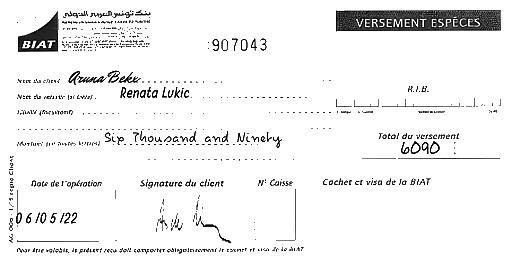 بنك تونس العربي الدولي
BIAT
VERSEMENT ESPÈCES
907043
Nom du client Aruna Beku
R.I.B.
Nom du remettant Renata Lukic
Libellé (facultatif)
Montant (en toutes lettres) Six Thousand and Ninety
Total du versement
6090
Date de l'opération
Signature du client
N° Caisse
Cachet et visa de la BIAT
06/05/22
Pour être valable, le présent reçu doit comporter obligatoirement le cachet et visa de la BIAT